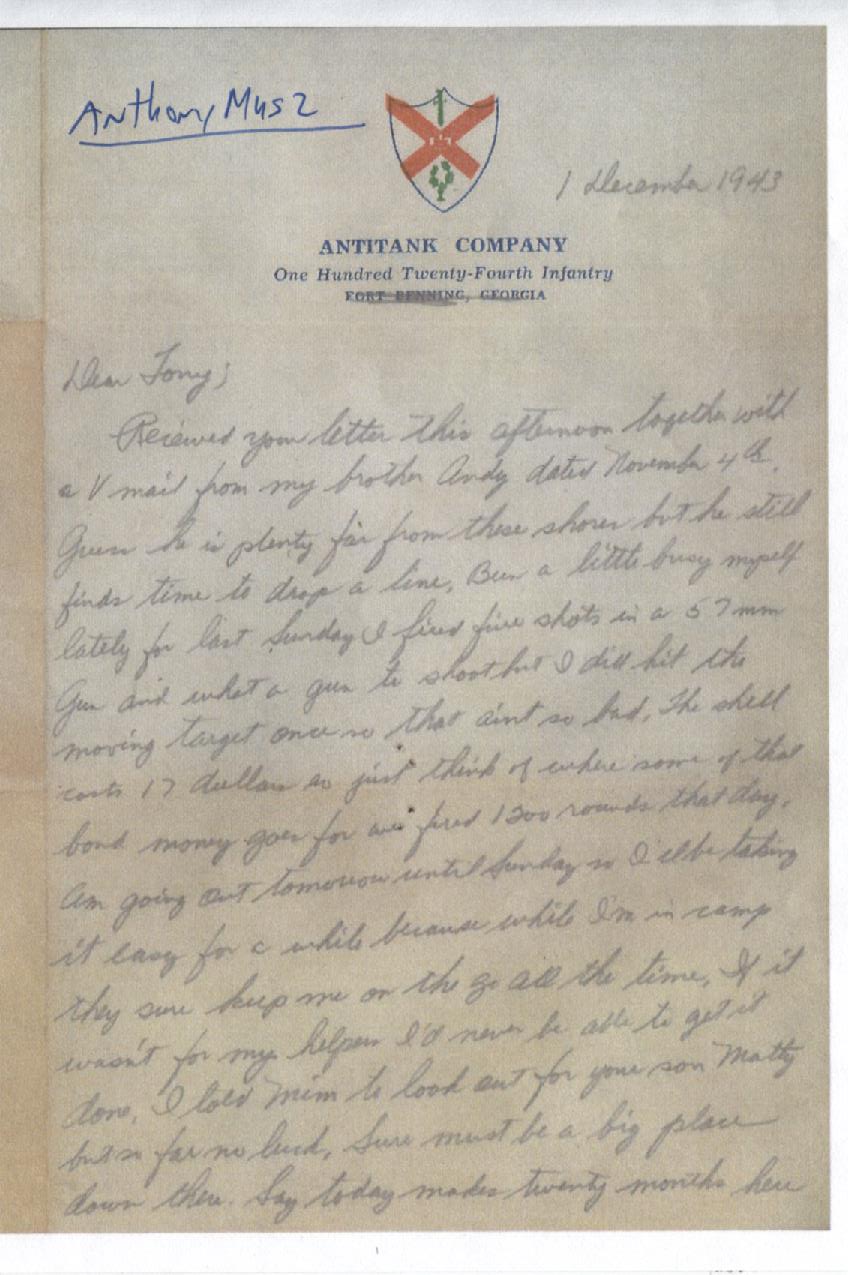 Anthony Musz
1 December 1943
ANTITANK COMPANY
One Hundred Twenty-Fourth Infantry
FORT BENNING, GEORGIA
Dear Tony;
Recieved your letter this afternoon together with
a V mail from my brother Andy dated November 4th.
Guess he is plenty far from these shores but he still
finds time to drop a line. Been a little busy myself
lately for last Sunday I fired five shots in a 57mm
Gun and what a gun to shoot but I did hit the
moving target once so that aint so bad. The shell
costs 17 dollars so just think of where some of that
bond money goes for we fired 1300 rounds that day.
Am going out tomorrow until Sunday so I'll be taking
it easy for a while because while I'm in camp
they sure keep me on the go all the time. If it
wasn't for my helpers I'd never be able to get it
done. I told Mim to look out for your son Matty
but so far no luck. Sure must be a big place
down there. Say today makes twenty months here